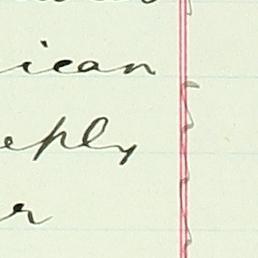 ican
eply
r